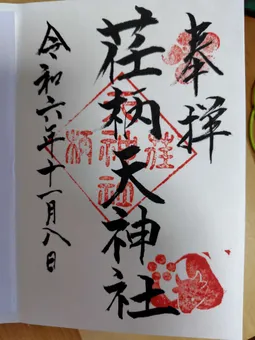 奉拝
荏柄天神社
令和六年十一月八日